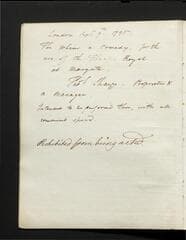 London Sept 9th 1795
The above a Comedy, for the
use of the Theatre Royal
at Margate.
Thos Shaw Proprietor &
a Manager
Intended to be performed there, with all
convenient speed
Prohibited from being acted